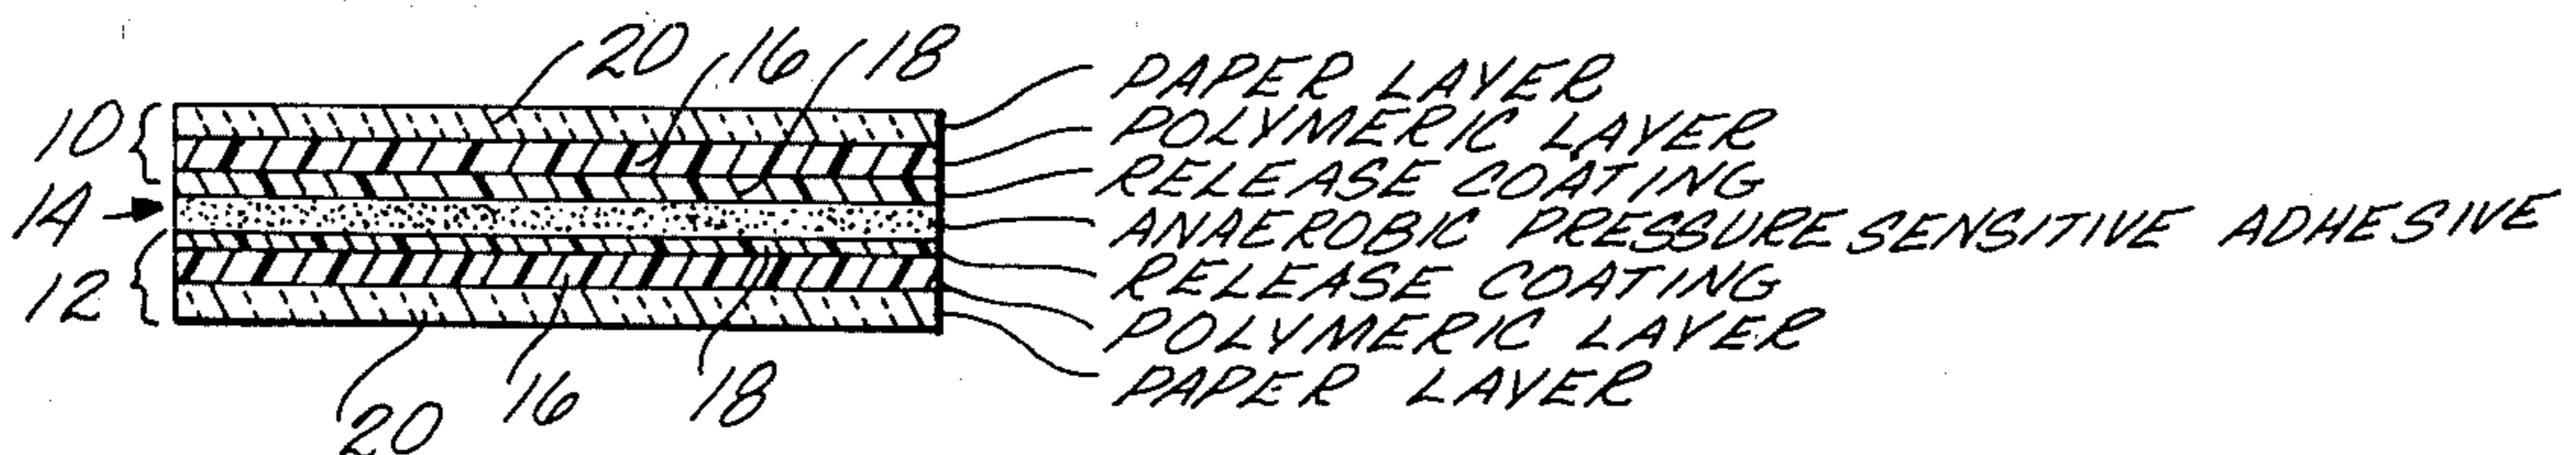 20 16 18
10
14
12
PAPER LAYER
POLYMERIC LAYER
RELEASE COATING
ANAEROBIC PRESSURE SENSITIVE ADHESIVE
RELEASE COATING
POLYMERIC LAYER
PAPER LAYER
20 16 18